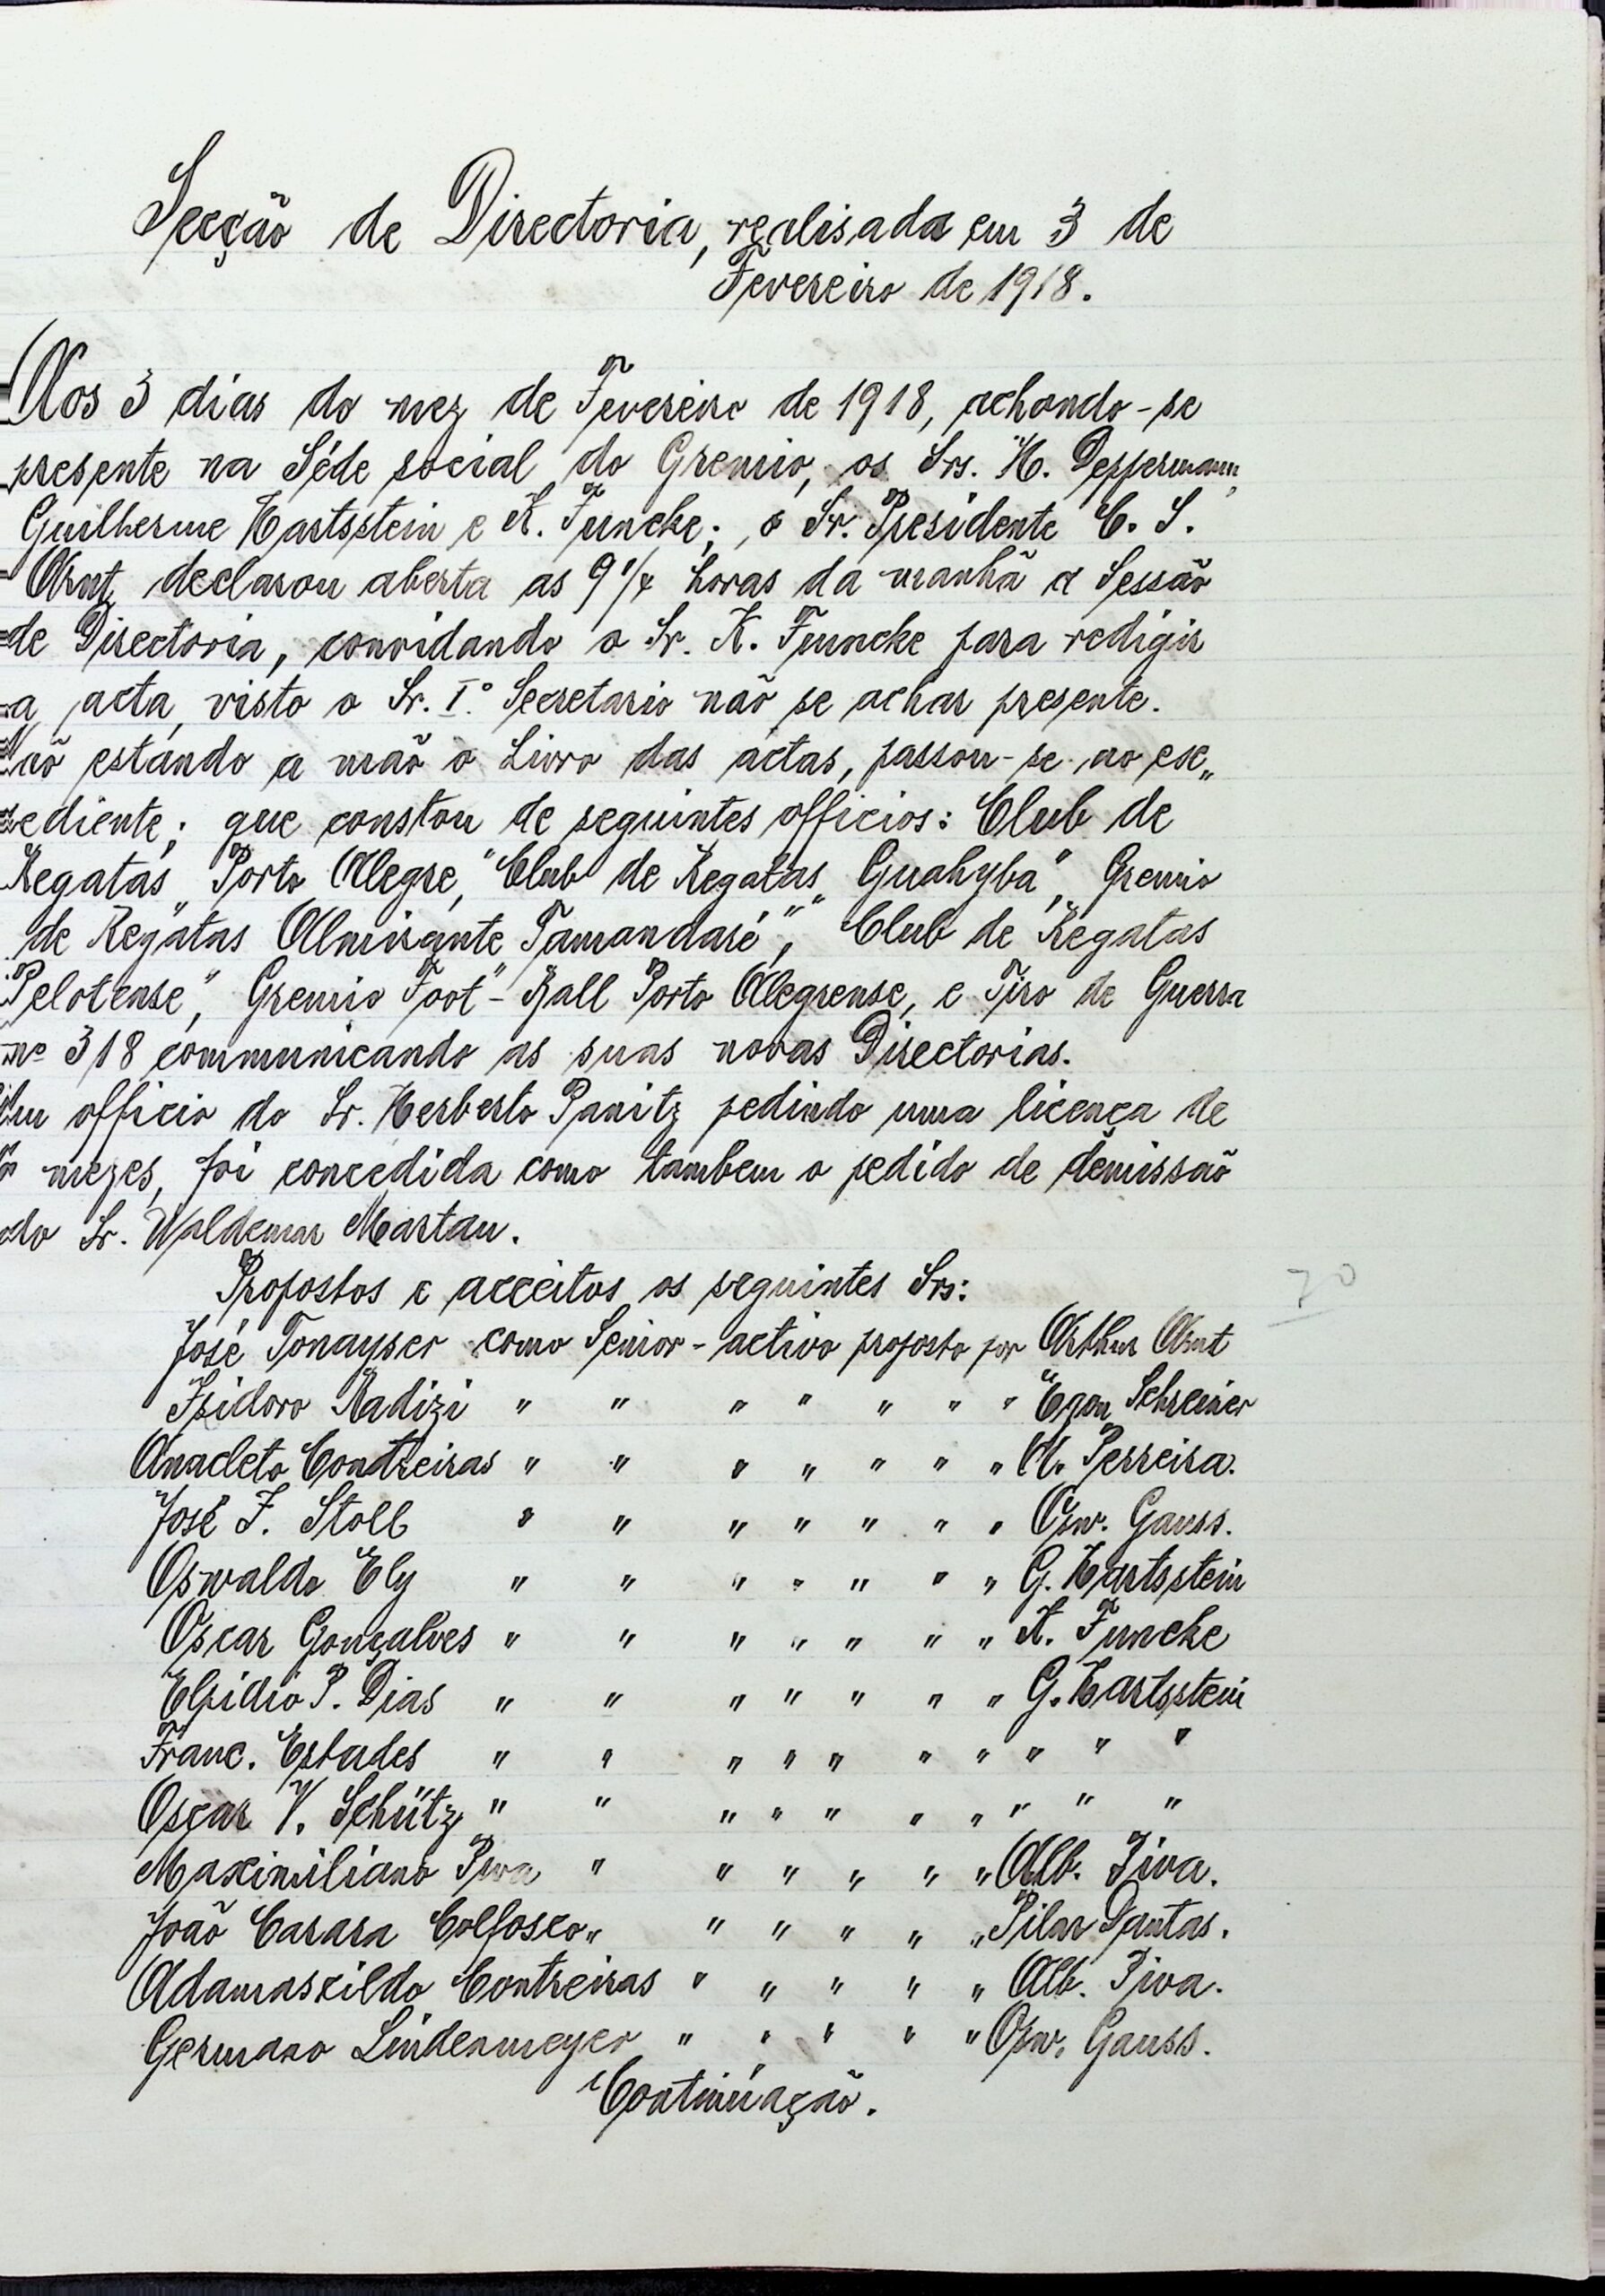 Secção de Directoria, realisada em 3 de
Fevereiro de 1918.
Aos 3 dias do mez de Fevereiro de 1918, achando-se
presente na Séde social do Gremio, os Srs. H. Deppermann,
Guilherme Hartsstein e K. Funcke; o Sr. Presidente C. S.
Arnt declarou aberta as 9 1/4 horas da manhã a Sessão
de Directoria, convidando o Sr. K. Funcke para redigir
a acta, visto o Sr. I.º Secretario não se achar presente.
Não estando a mão o Livro das actas, passou-se ao ex„
pediente; que constou de seguintes officios: Club de
Regatas „Porto Alegre," Club de Regatas „Guahyba", Gremio
de Regatas Almirante „Tamandaré", Club de Regatas
„Pelotense", Gremio Foot-Ball Porto Alegrense, e Tiro de Guerra
nº 318 communicando as suas novas Directorias.
Um officio do Sr. Herberto Panitz pedindo uma licença de
mezes, foi concedida como tambem o pedido de demissão
do Sr. Waldemar Martau.
Propostos e acceitos os seguintes Srs:
José Tonayser como Senior-activo proposto por Arthur Arnt
Isidoro Radizi " " " " " " " Egon Schreiner
Anacleto Contreiras " " " " " " " A. Perreira.
José F. Stoll " " " " " " " Osw. Gauss.
Oswaldo Ely " " " " " " " G. Hartsstein
Oscar Gonçalves " " " " " " " K. Funcke
Elpidio P. Dias " " " " " " " G. Hartsstein
Franc. Estades " " " " " " " " " "
Oscar V. Schütz " " " " " " " " " "
Maximiliano Piva " " " " " " Alb. Piva.
João Carara Colfosco " " " " " " Pilar Dantas.
Adamaskildo Contreiras " " " " " Alb. Piva.
Germano Lindenmeyer " " " " " Osw. Gauss.
Continuação.
70